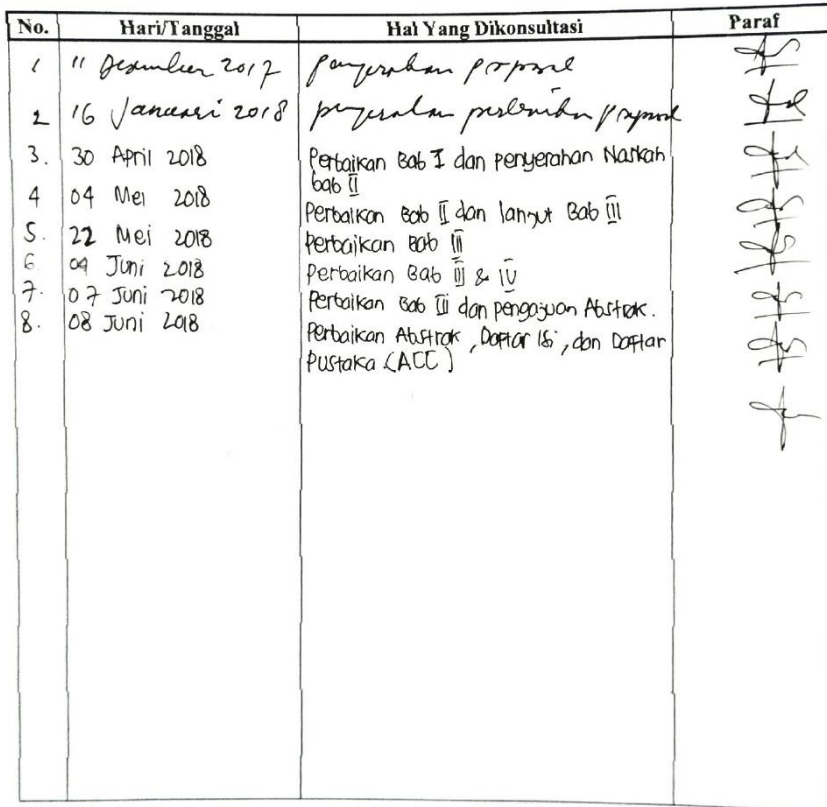 No. Hari/Tanggal Hal Yang Dikonsultasi Paraf
1 11 Desember 2017 penyerahan proposal
2 16 Januari 2018 penyerahan perbaikan proposal
3. 30 April 2018 Perbaikan Bab I dan penyerahan Naskah
bab II
4 04 Mei 2018 Perbaikan Bab II dan lanjut Bab III
5. 22 Mei 2018 Perbaikan Bab III
6 04 Juni 2018 Perbaikan Bab III & IV
7. 07 Juni 2018 Perbaikan Bab III dan pengajuan Abstrak.
8. 08 Juni 2018 Perbaikan Abstrak, Daftar Isi, dan Daftar
Pustaka (ACC)